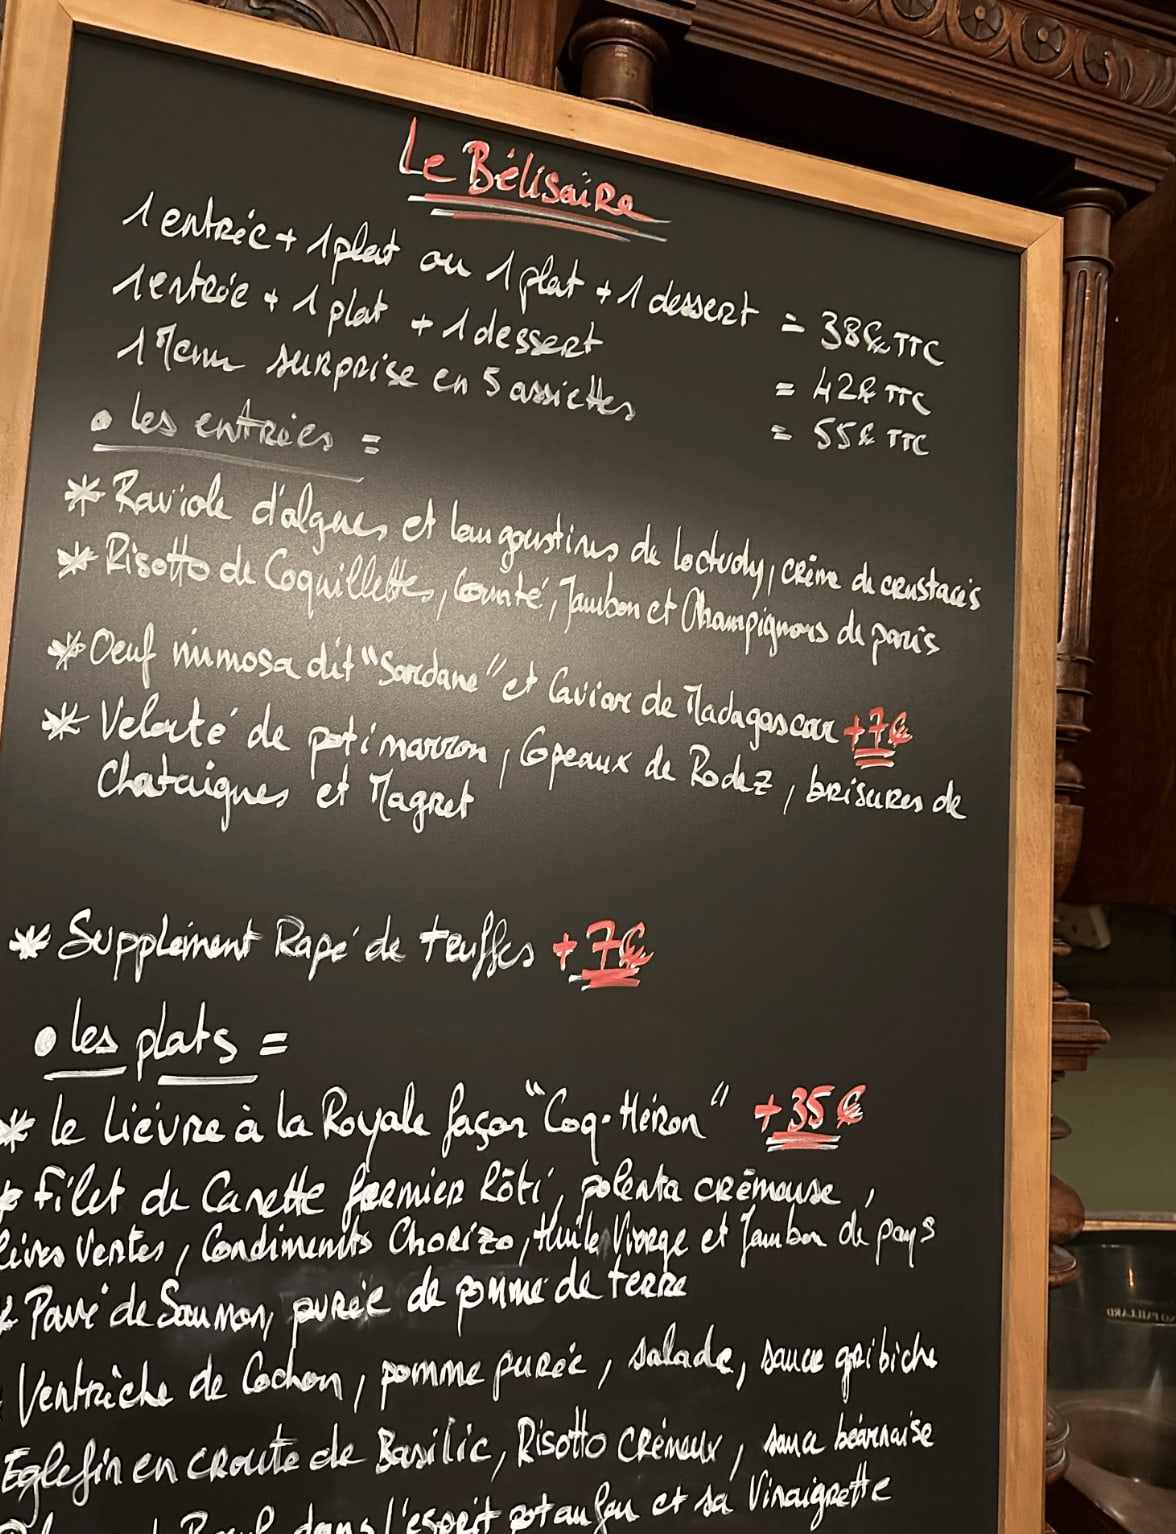 Le Bélisaire
1 entrée + 1 plat ou 1 plat + 1 dessert = 38€ TTC
1 entrée + 1 plat + 1 dessert = 42€ TTC
1 Menu surprise en 5 assiettes = 55€ TTC
• les entrées =
* Raviole d'algues et langoustines de loctudy, crème de crustacés
* Risotto de Coquillettes, Comté, Jambon et Champignons de paris
* Oeuf mimosa dit "Sardane" et Caviar de Madagascar +7€
* Velouté de potimarron, Copeaux de Rodez, brisures de
Chataignes et Magret
* Supplément Rapé de truffes +7€
• les plats =
* Le Lièvre à la Royale façon "Coq-Héron" +35€
* Filet de Canette fermier Rôti, polenta crémeuse,
lives Vertes, Condiments Chorizo, Huile Vierge et Jambon de pays
* Pavé de Saumon, purée de pomme de terre
Ventrèche de Cochon, pomme purée, salade, sauce gribiche
Eglefin en croute de Basilic, Risotto Crémeux, sauce béarnaise
Boeuf dans l'esprit pot au feu et sa Vinaigrette